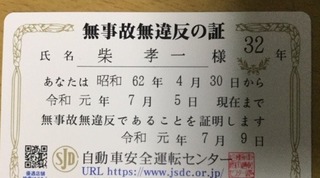 無事故無違反の証
氏名 柴 孝一 様 32 年
あなたは 昭和 62 年 4 月 30 日から
令和 元 年 7 月 5 日 現在まで
無事故無違反であることを証明します
令和 元 年 7 月 9 日
優遇店舗
SJD 自動車安全運転センター
URL https://www.jsdc.or.jp/